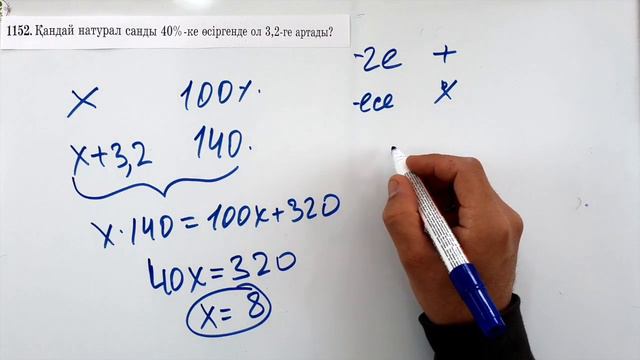 1152. Қандай натурал санды 40%-ке өсіргенде ол 3,2-ге артады?
x 100%.
x+3,2 140.
x·140=100x+320
40x=320
x=8
-ге +
-есе x